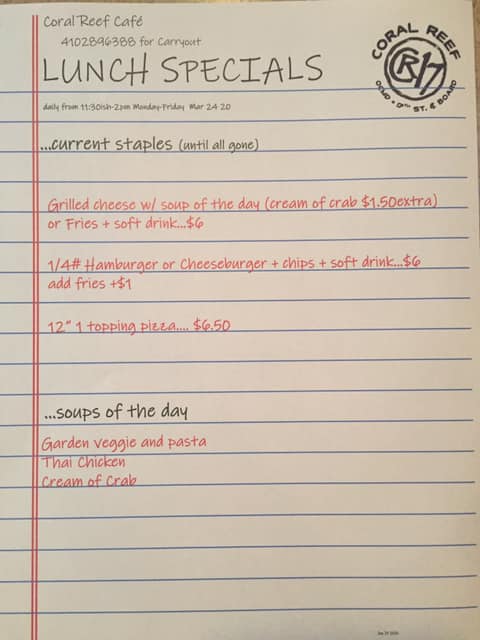 Coral Reef Café
4102896388 for Carryout
LUNCH SPECIALS
CORAL REEF
CR17
OCMD • 17TH ST. & BOARD
daily from 11:30ish-2pm Monday-Friday Mar 24 20
...current staples (until all gone)
Grilled cheese w/ soup of the day (cream of crab $1.50extra)
or Fries + soft drink...$6
1/4# Hamburger or Cheeseburger + chips + soft drink...$6
add fries +$1
12" 1 topping pizza.... $6.50
...soups of the day
Garden veggie and pasta
Thai Chicken
Cream of Crab